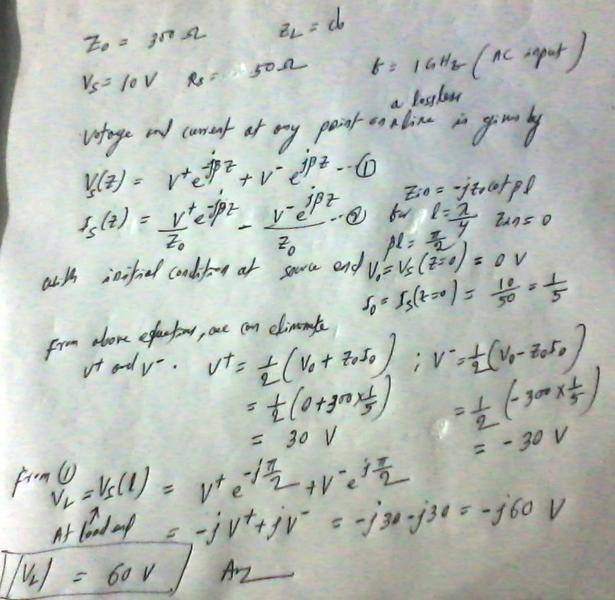 Z₀ = 300 Ω Z_L = ∞
V_S = 10 V R_S = 50 Ω f = 1 GHz (AC input)
Voltage and current at any point on a lossless line is given by
V_S(z) = V⁺ e^{-jβz} + V⁻ e^{jβz} --- ①
I_S(z) = V⁺/Z₀ e^{-jβz} - V⁻/Z₀ e^{jβz} --- ②
Z_in = -jZ₀ cot βl
for l = λ/4 Z_in = 0
βl = π/2
with initial condition at source end V₀ = V_S(z=0) = 0 V
I₀ = I_S(z=0) = 10/50 = 1/5
from above equations, we can eliminate
V⁺ and V⁻. V⁺ = 1/2 (V₀ + Z₀I₀) ; V⁻ = 1/2 (V₀ - Z₀I₀)
= 1/2 (0 + 300 × 1/5) = 1/2 (-300 × 1/5)
= 30 V = -30 V
From ①
V_L = V_S(l) = V⁺ e^{-jπ/2} + V⁻ e^{jπ/2}
↑
At load end = -jV⁺ + jV⁻ = -j30 - j30 = -j60 V
|V_L| = 60 V Ans